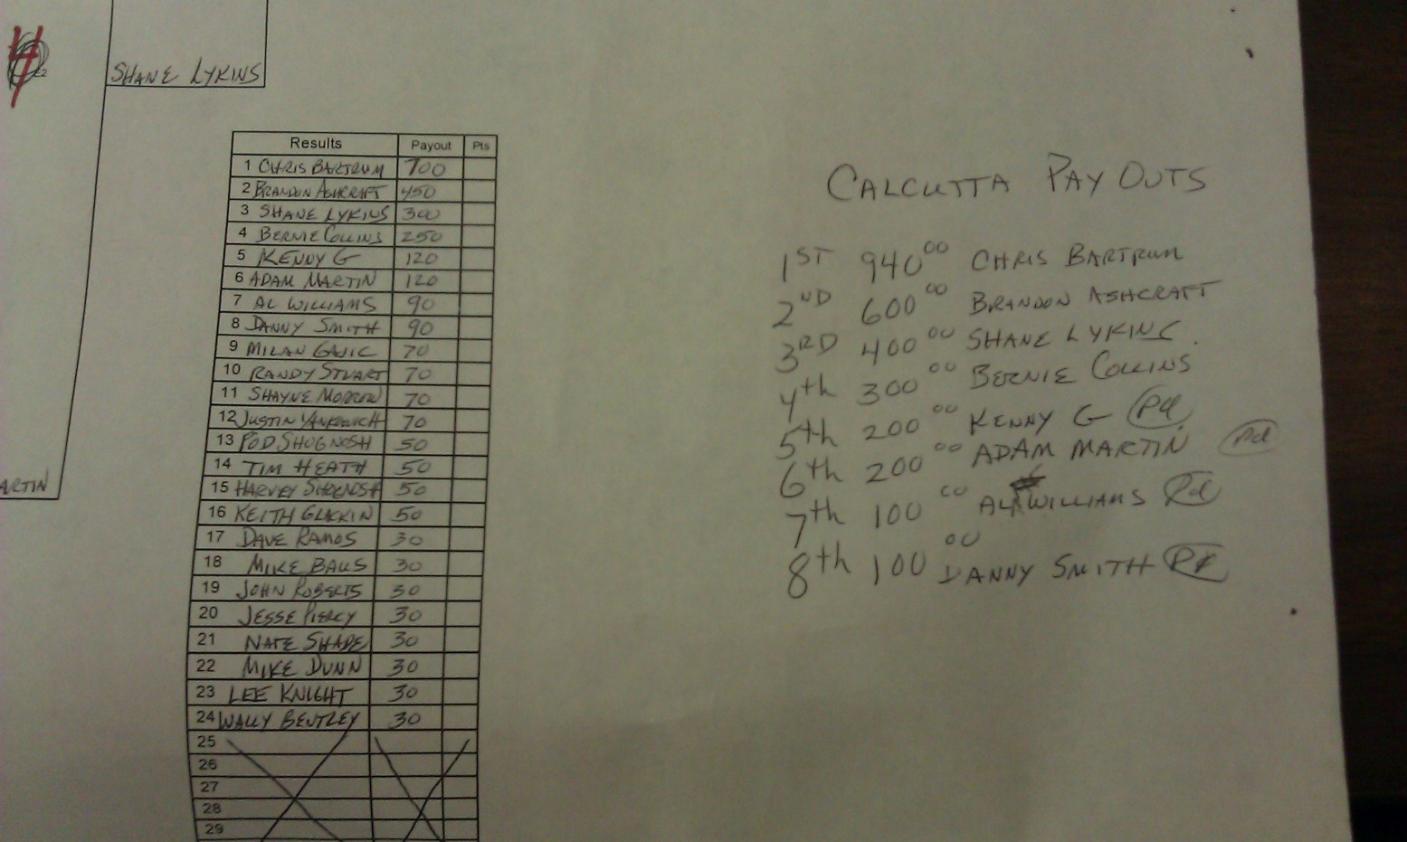 SHANE LYKINS
Results Payout Pts
1 CHRIS BARTRUM 700
2 BRANDON ASHCRAFT 450
3 SHANE LYKINS 300
4 BERNIE COLLINS 250
5 KENNY G 120
6 ADAM MARTIN 120
7 AL WILLIAMS 90
8 DANNY SMITH 90
9 MILAN GAJIC 70
10 RANDY STUART 70
11 SHAYNE MORROW 70
12 JUSTIN 70
13 50
14 TIM HEATH 50
15 HARVEY 50
16 KEITH GLACKIN 50
17 DAVE RAMOS 30
18 MIKE BALLS 30
19 JOHN ROBERTS 30
20 JESSE PIERCY 30
21 NATE SHADE 30
22 MIKE DUNN 30
23 LEE KNIGHT 30
24 WALLY BENTLEY 30
25
26
27
28
29
ARTIN
CALCUTTA PAY OUTS
1ST 940.00 CHRIS BARTRUM
2ND 600.00 BRANDON ASHCRAFT
3RD 400.00 SHANE LYKINS
4th 300.00 BERNIE COLLINS
5th 200.00 KENNY G Pd
6th 200.00 ADAM MARTIN Pd
7th 100.00 AL WILLIAMS Pd
8th 100.00 DANNY SMITH Pd